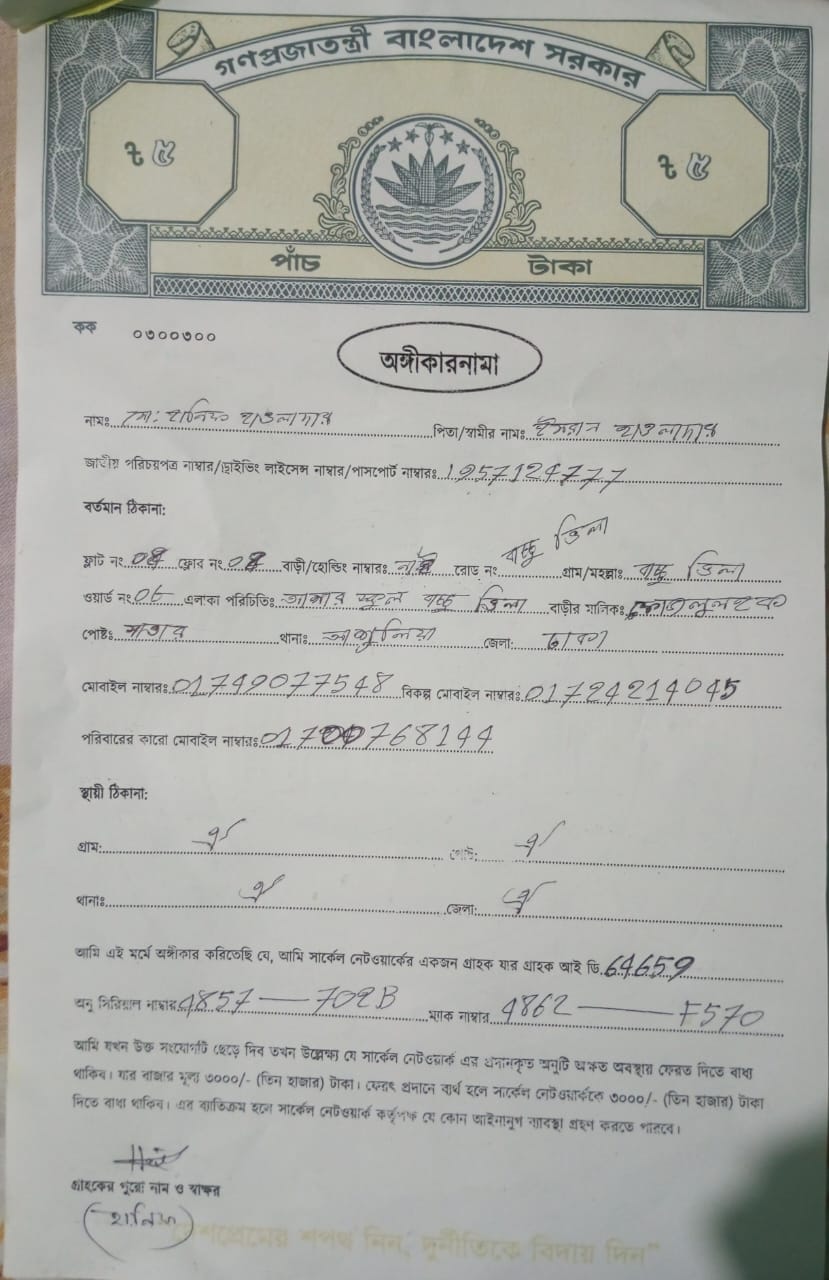 গণপ্রজাতন্ত্রী বাংলাদেশ সরকার
৳ ৫ ৳ ৫
পাঁচ টাকা
কক ০৩০০৩০০
অঙ্গীকারনামা
নামঃ মো: হানিফ হাওলাদার পিতা/স্বামীর নামঃ হাওলাদার
জাতীয় পরিচয়পত্র নাম্বার/ড্রাইভিং লাইসেন্স নাম্বার/পাসপোর্ট নাম্বারঃ 1957124777
বর্তমান ঠিকানা:
ফ্লাট নং ফ্লোর নং বাড়ী/হোল্ডিং নাম্বারঃ নাই রোড নং বাচ্চু ভিলা গ্রাম/মহল্লাঃ বাচ্চু ভিলা
ওয়ার্ড নং 06 এলাকা পরিচিতিঃ স্কুল বাচ্চু ভিলা বাড়ীর মালিকঃ
পোষ্টঃ সাভার থানাঃ আশুলিয়া জেলা: ঢাকা
মোবাইল নাম্বারঃ 01749077548 বিকল্প মোবাইল নাম্বার: 01724214045
পরিবারের কারো মোবাইল নাম্বারঃ 01700768144
স্থায়ী ঠিকানা:
গ্রাম: ঐ পোষ্ট: ঐ
থানাঃ ঐ জেলা: ঐ
আমি এই মর্মে অঙ্গীকার করিতেছি যে, আমি সার্কেল নেটওয়ার্কের একজন গ্রাহক যার গ্রাহক আই ডি. 64659
অনু সিরিয়াল নাম্বার 4857 — 702B ম্যাক নাম্বার 4862 — F570
আমি যখন উক্ত সংযোগটি ছেড়ে দিব তখন উল্লেক্ষ্য যে সার্কেল নেটওয়ার্ক এর প্রদানকৃত অনুটি অক্ষত অবস্থায় ফেরত দিতে বাধ্য
থাকিব। যার বাজার মূল্য ৩০০০/- (তিন হাজার) টাকা। ফেরৎ প্রদানে ব্যর্থ হলে সার্কেল নেটওয়ার্ককে ৩০০০/- (তিন হাজার) টাকা
দিতে বাধ্য থাকিব। এর ব্যতিক্রম হলে সার্কেল নেটওয়ার্ক কর্তৃপক্ষ যে কোন আইনানুগ ব্যবস্থা গ্রহণ করতে পারবে।
গ্রাহকের পুরো নাম ও স্বাক্ষর
(হানিফ)
"দেশপ্রেমের শপথ নিন, দুর্নীতিকে বিদায় দিন"